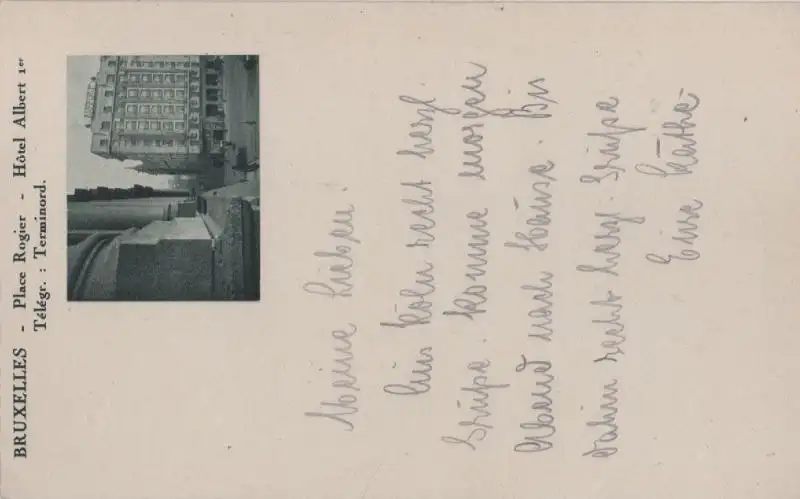 BRUXELLES - Place Rogier - Hôtel Albert 1er
Télégr. : Terminord.
Meine Lieben.
Aus Köln recht herzl.
Grüße. Komme morgen
Abend nach Hause. Bis
dahin recht herz. Grüße
Eure Käthe